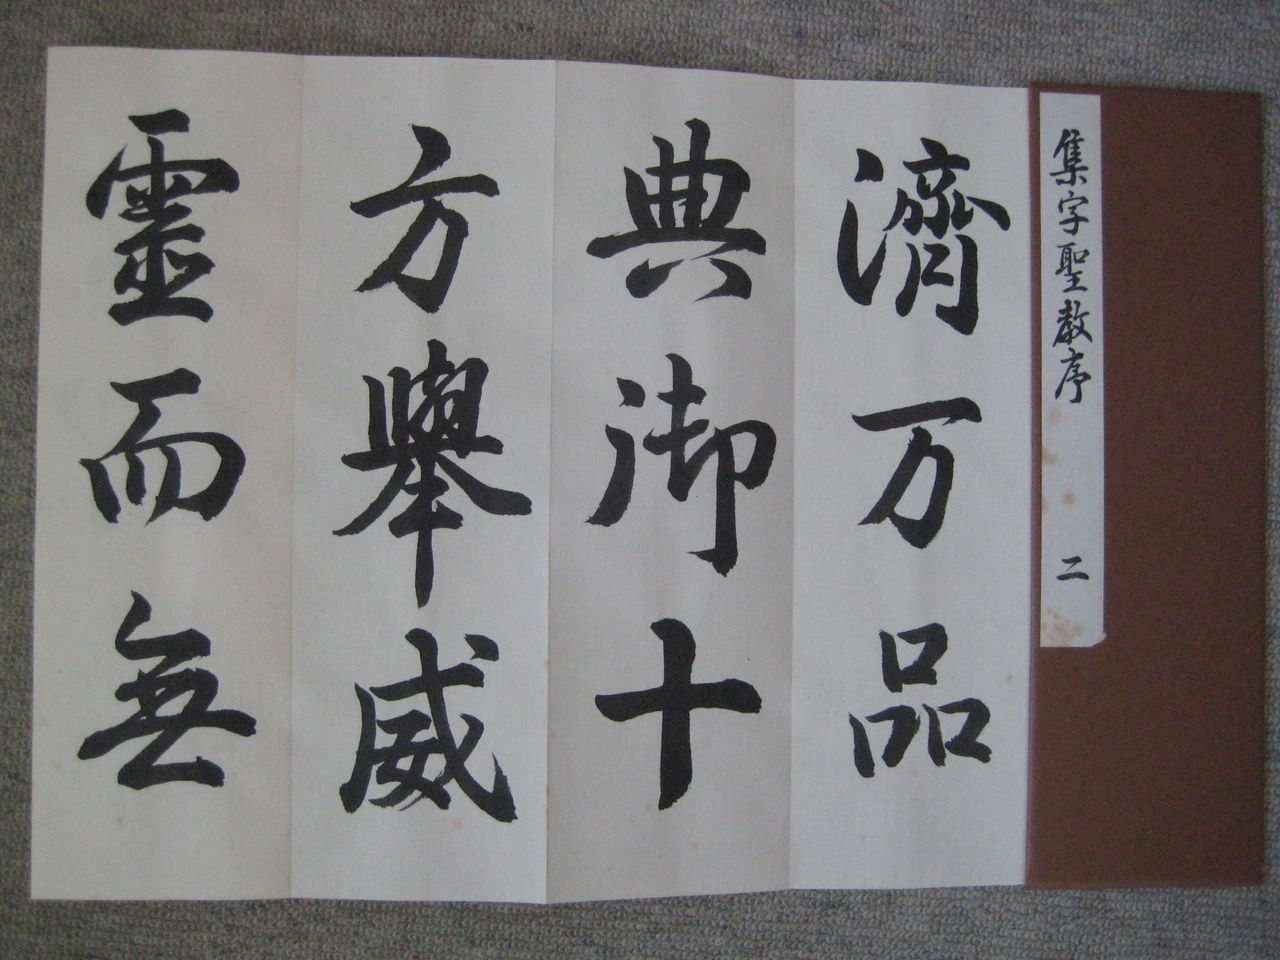 集字聖教序 二
濟万品
典御十
方舉威
靈而無